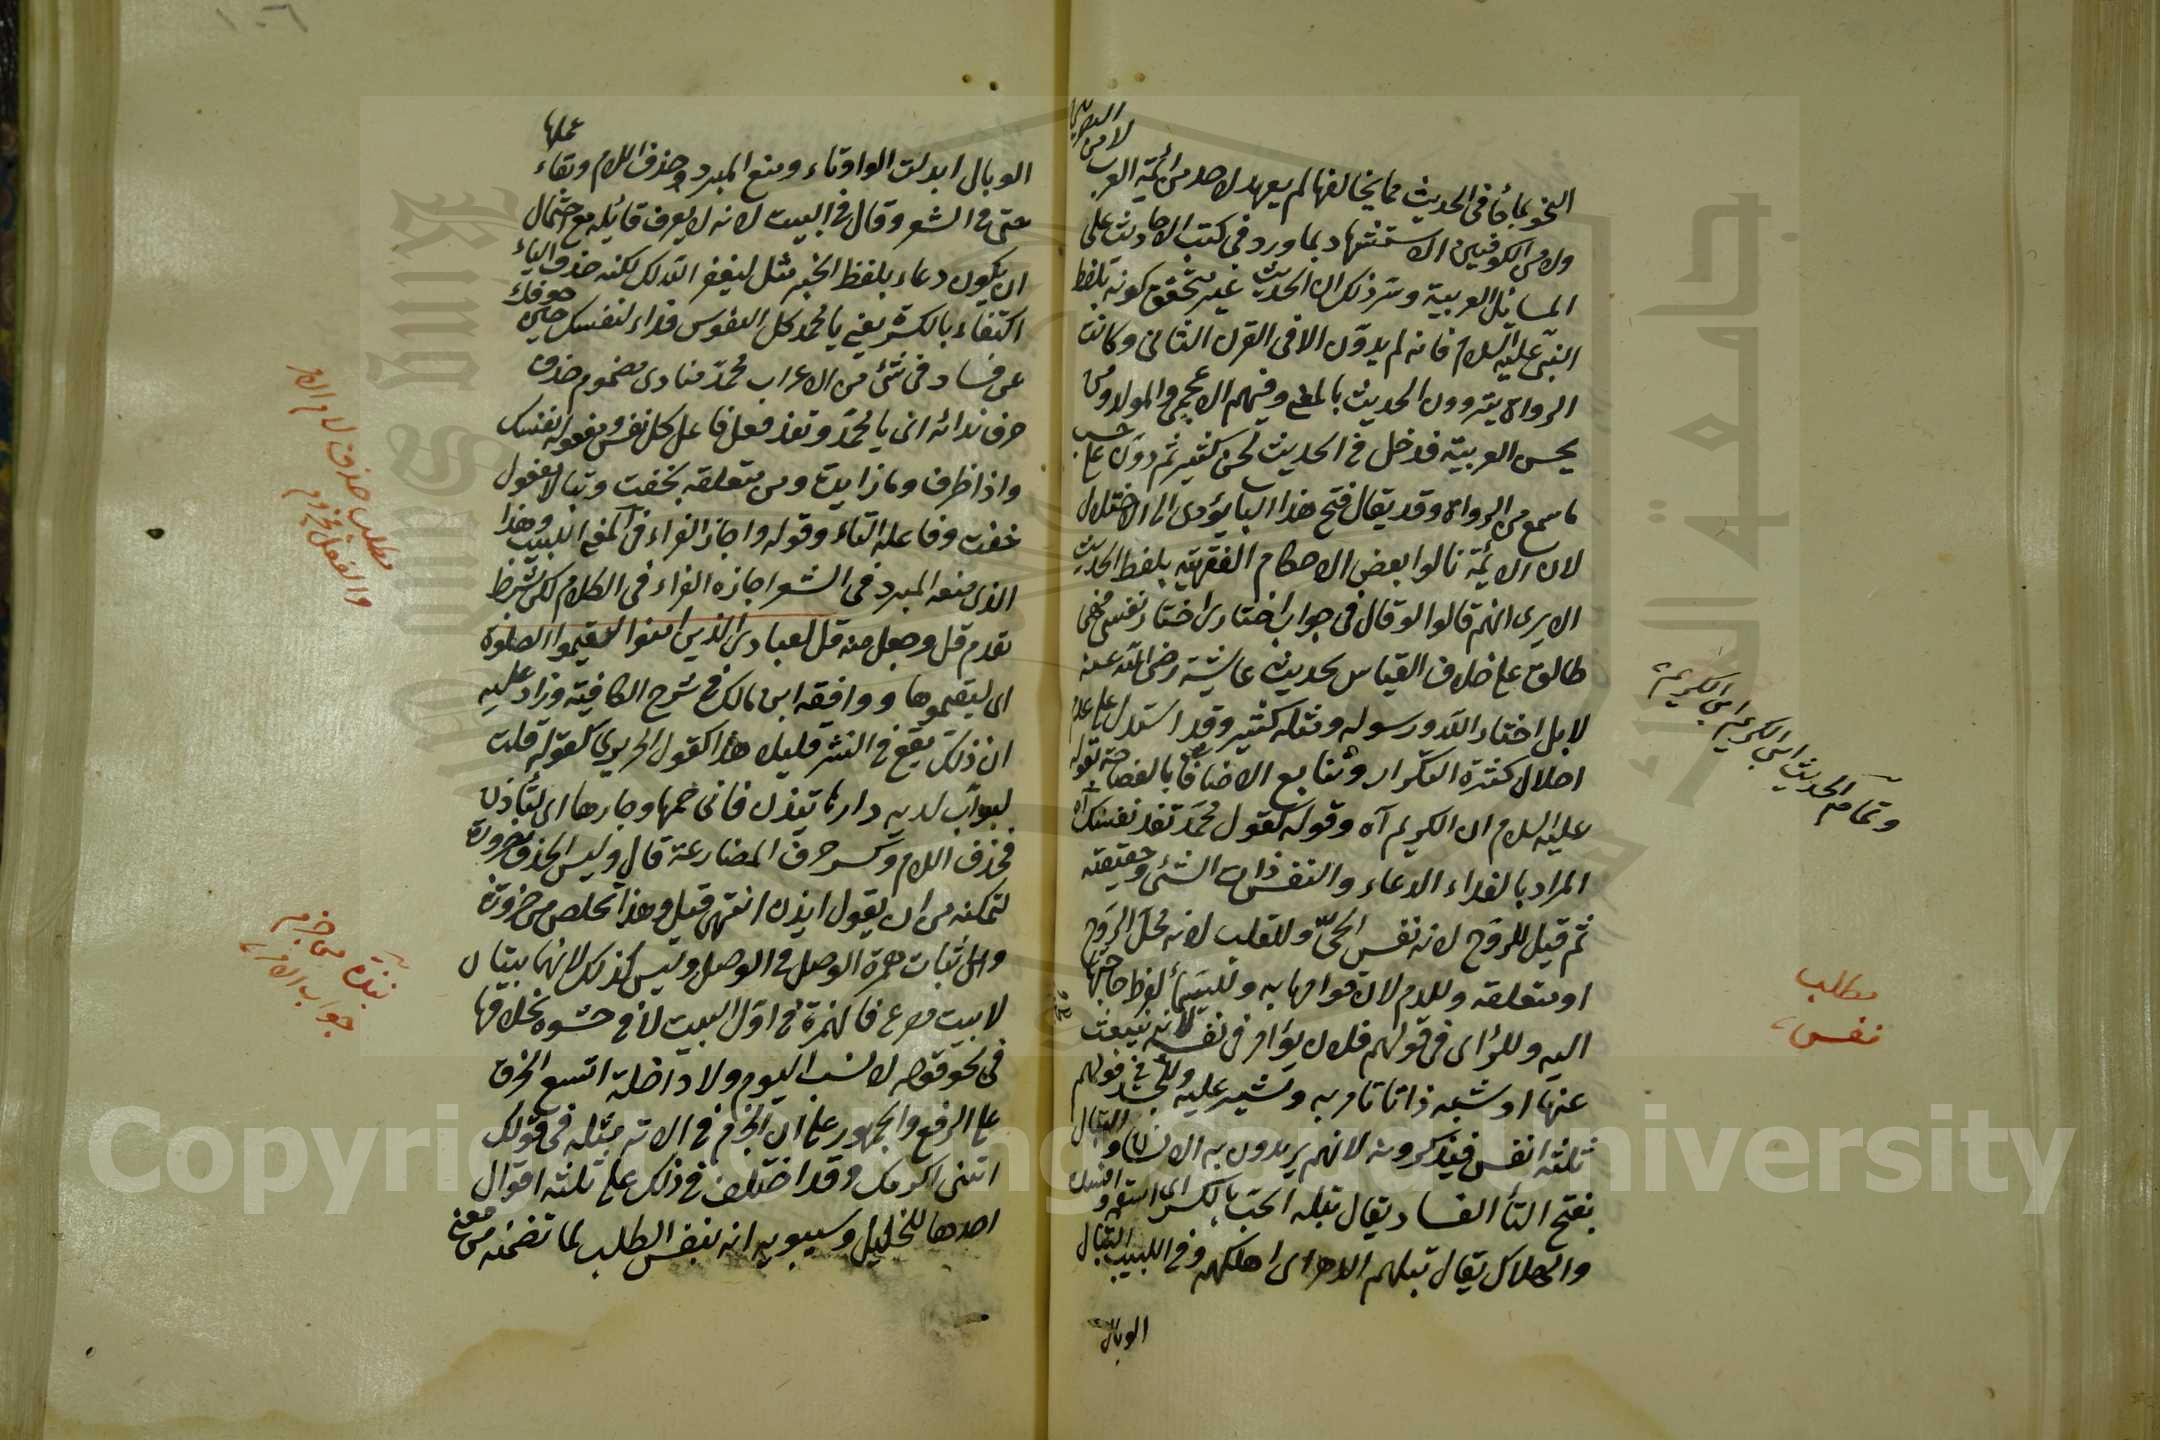 البصريين
لا من
النحو بما جأ في الحديث مما يخالفها لم يعهد لاحد من ائمة العرب
ولا من الكوفيين الاستشهاد بما ورد في كتب الاحاديث على
المسائل العربية وسر ذلك ان الحديث غير متحقق كونه بلفظ
النبي عليه السلام فانه لم يدون الا في القرن الثاني وكانت
الرواة يروون الحديث بالمعنى وفيهم الاعجمي والمولد ومن
يحسن العربية فدخل في الحديث لحن كثير ثم دون على حسب
ما سمع من الرواة وقد يقال فتح هذا الباب يؤدى الى الاختلال
لان الائمة نالوا بعض الاحكام الفقهية بلفظ الحديث
الا يرى انهم قالوا لو قال في جواب اختارى اختار نفسي فهي
طالق على خلاف القياس بحديث عايشة رضى الله عنه
لا بل اختار الله ورسوله ومثله كثير وقد استدل على عدم
اخلال كثرة التكرار وتتابع الاضافات بالفصاحة بقوله
عليه السلام ان الكريم آه وقوله كقول محمد تفد نفسك آه
المراد بالفداء الدعاء والنفس ذات الشئ وحقيقته
ثم قيل للروح لانه نفس الحي وللقلب لانه محل الروح
او متعلقه وللدم لان قوامها به وللماء لفرط حاجتها
اليه وللرأى في قولهم فلان يؤامر نفسه لانه ينبعث
عنها او شبه ذاتا تامر به وتشير عليه وفي قولهم
ثلثة انفس فيذكرونه لانهم يريدون به الانسان والتبال
بفتح التأ الفساد يقال تبله الحب بالكسر اى اسقمه وافسده
والهلاك يقال تبلهم الدهر اى اهلكهم وفي اللبيب التبال
الوبال
وتمام الحديث ابن الكريم ابن الكريم
مطلب
نفس
عملها
الوبال ابدلت الواو تاء ومنع المبرد حذف اللام وبقاء
حتى في الشعر وقال في البيت لانه لا يعرف قائله مع احتمال
ان يكون دعاء بلفظ الخبر مثل ليغفر الله لك لكنه حذف الياء
اكتفاء بالكسرة يعنى يا محمد كل النفوس فداء لنفسك حين خوفك
عن فساد في شئ من الاعراب محمد منادى مضموم حذف
حرف ندائه اى يا محمد وتفد فعل فاعل كل نفس ومفعوله نفسك
واذا ظرف وما زايدة ومن متعلقه بخفت وتبالا مفعول
خفت وفاعله التاء وقوله واجاز الفراء في المغنى اللبيب وهذا
الذى منعه المبرد في الشعر اجازه الفراء في الكلام لكن بشرط
تقدم قل وجعل منه قل لعبادى الذين امنوا يقيموا الصلوة
اى ليقيموها ووافقه ابن مالك في شرح الكافية وزاد عليه
ان ذلك يقع في النثر قليلا هذا كقول الحريري كقوله قلت
لبواب لديه دارها تيذن فانى حمها وجارها اى لتأذن
فحذف اللام وكسر حرف المضارعة قال وليس الحذف بضرورة
لتمكنه من ان يقول ايذن انتهى قيل وهذا تخلص من ضرورة
اثبات همزة الوصل في الوصل وليس كذلك لانهما بيتان
لا بيت مصرع فالهمزة في اول البيت لا في حشوه بخلافها
في نحو قوله لا نسب اليوم ولا خلة اتسع الخرق
على الرفع والجمهور على ان الجزم في الاتم بمثله في قولك
ائتنى اكرمك وقد اختلف في ذلك على ثلثة اقوال
احدها للخليل وسيبويه انه بنفس الطلب لما تضمنه من معنى
مطلب حذف لام الامر
والفعل مجزوم
نبذة من جزم
جواب الامر
١٠٦
Copyright © King Saud University
King Saud University
جامعة الملك سعود